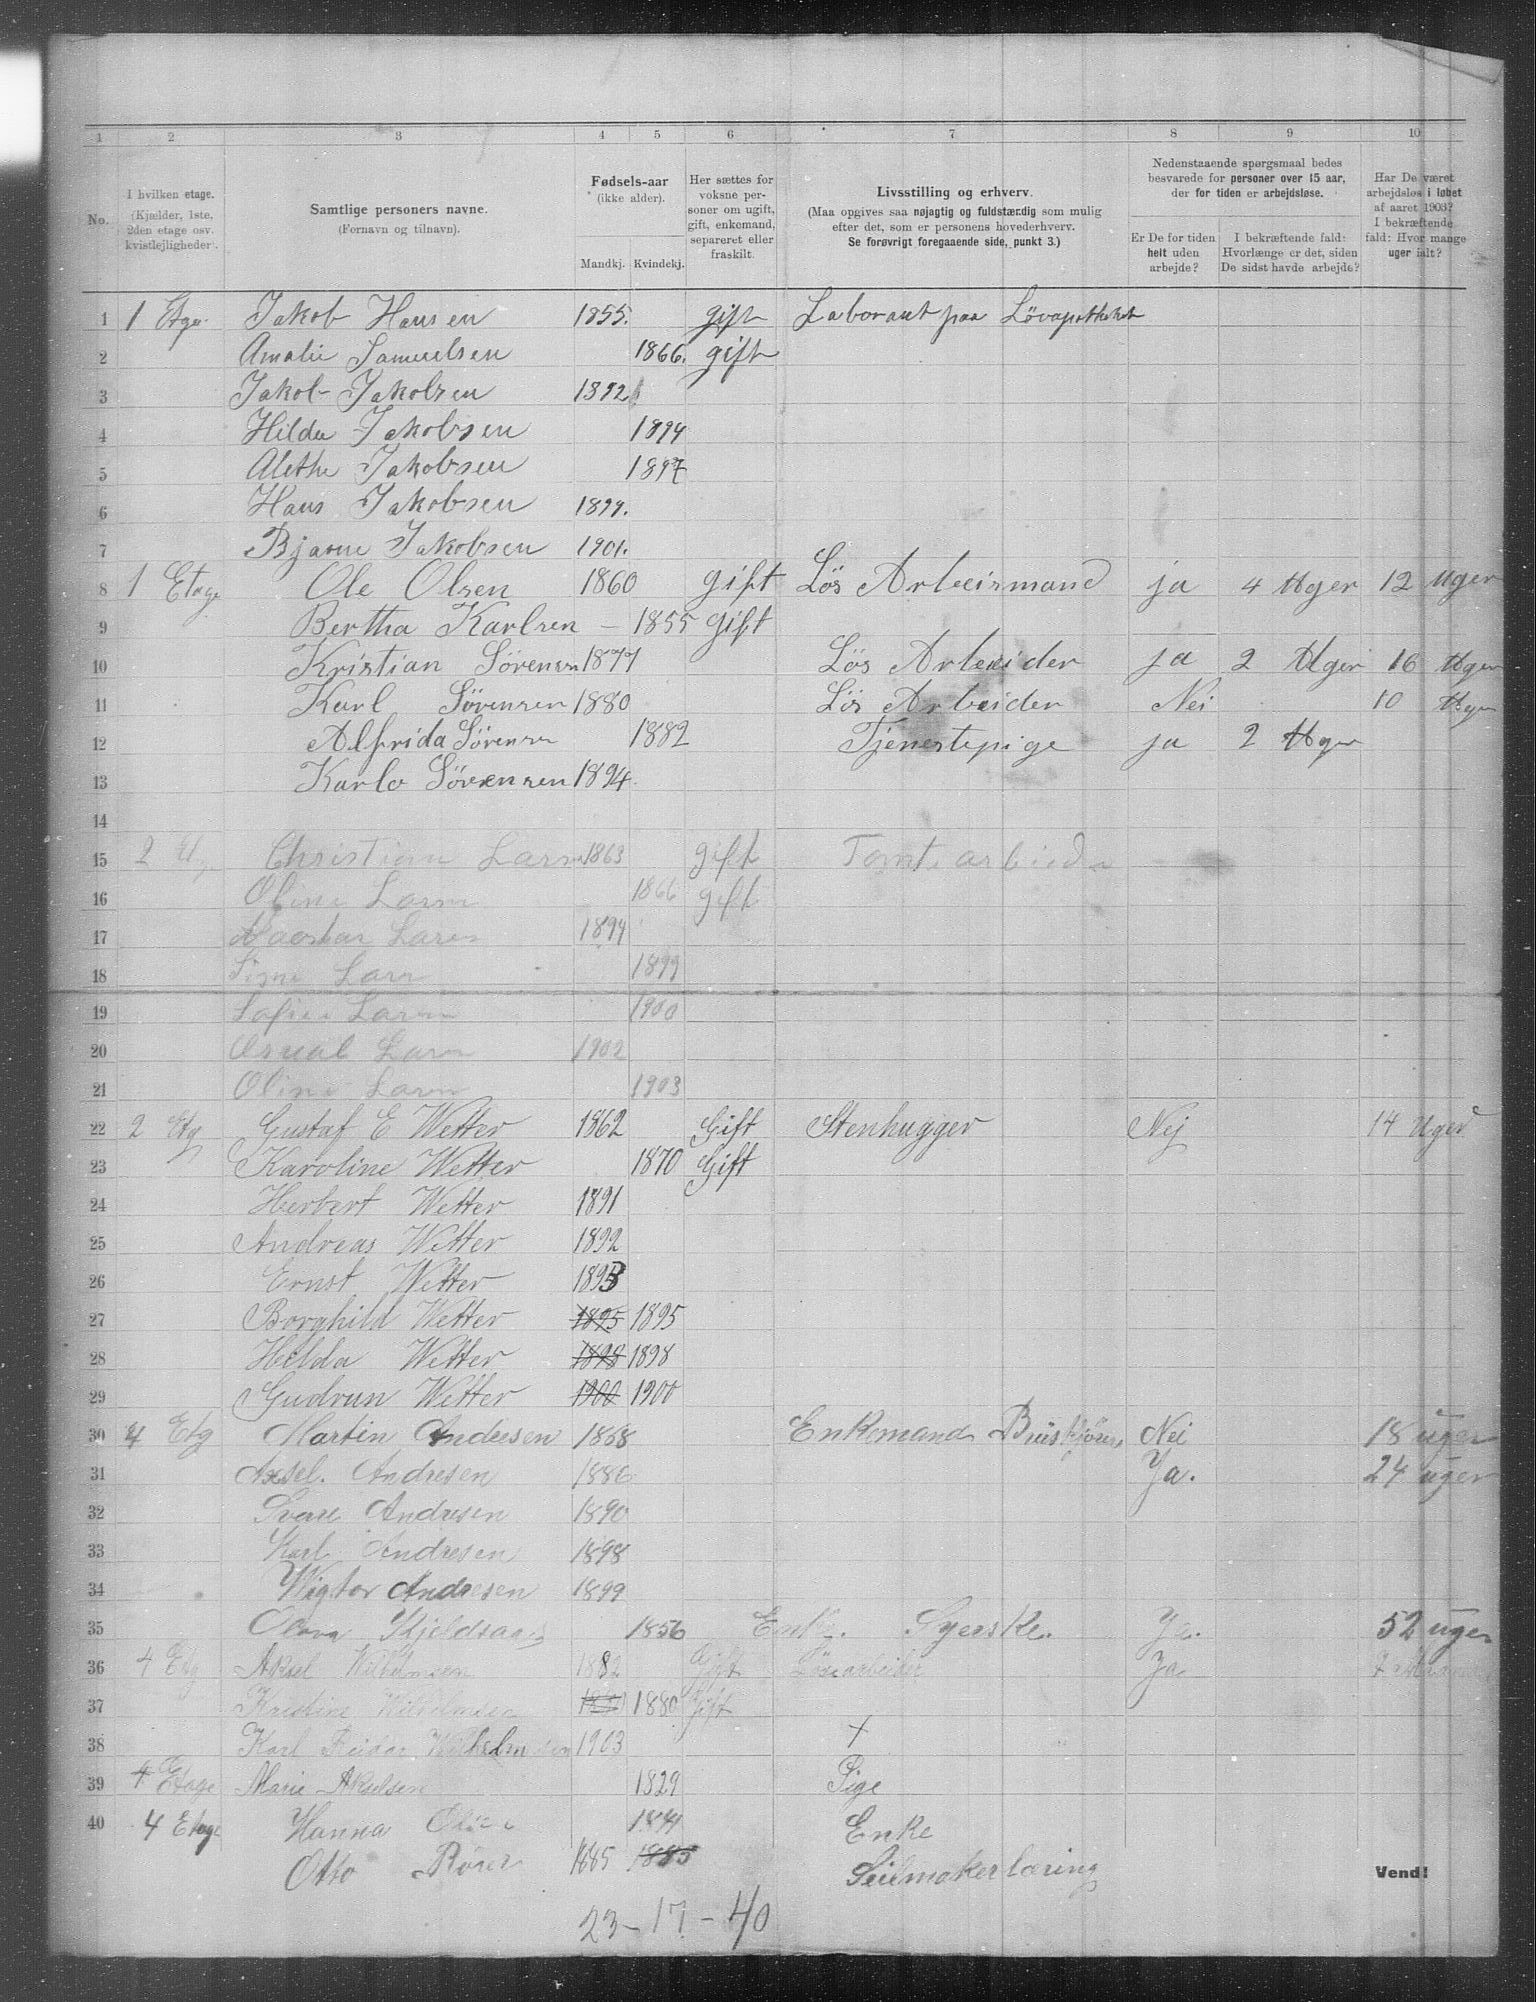 1 2 3 4 5 6 7 8 9 10
No. I hvilken etage. (Kjælder, 1ste, 2den etage osv. kvistlejligheder). Samtlige personers navne. (Fornavn og tilnavn). Fødsels-aar (ikke alder). Mandkj. Kvindekj. Her sættes for voksne personer om ugift, gift, enkemand, separeret eller fraskilt. Livsstilling og erhverv. (Maa opgives saa nøjagtig og fuldstændig som mulig efter det, som er personens hovederhverv. Se forøvrigt foregaaende side, punkt 3.) Nedenstaaende spørgsmaal bedes besvarede for personer over 15 aar, der for tiden er arbejdsløse. Er De for tiden helt uden arbejde? I bekræftende fald: Hvorlænge er det, siden De sidst havde arbejde? Har De været arbejdsløs i løbet af aaret 1903? I bekræftende fald: Hvor mange uger ialt?
1 1 Etge. Jakob Hansen 1855. gift Laborant paa Løvapotheket
2 Amalie Samuelsen 1866. gift
3 Jakob Jakobsen 1892
4 Hilda Jakobsen 1894
5 Alethe Jakobsen 1897
6 Hans Jakobsen 1899.
7 Bjarne Jakobsen 1901.
8 1 Etage Ole Olsen 1860 gift Løs Arbeismand ja 4 Uger 12 Uger
9 Bertha Karlsen – 1855 gift
10 Kristian Sörensen 1877 Løs Arbeider ja 2 Uger 16 Uger
11 Karl Sörensen 1880 Løs Arbeider Nei 10 Uger
12 Alfrida Sörensen 1882 Tjenestepige ja 2 Uger
13 Karlo Sörensen 1894.
14
15 2 Christian Larsen 1863 gift Tomtearbieder
16 Oline Larsen 1866 gift
17 Larsen 1894
18 Signe Larsen 1899
19 Larsen 1900
20 Larsen 1902
21 Oline Larsen 1903
22 2 Etg Gustaf E Wetter 1862 Gift Stenhugger Nej 14 Uger
23 Karoline Wetter 1870 Gift
24 Herbert Wetter 1891
25 Andreas Wetter 1892
26 Ernst Wetter 1893
27 Borghild Wetter 1895 1895
28 Hilda Wetter 1898 1898
29 Gudrun Wetter 1900 1900
30 4 Etg Martin Andresen 1868 Enkemand Nei 18 uger
31 Axsel. Andresen 1886 Ja. 24 uger
32 Andresen 1890
33 Karl Andresen 1898
34 Wigtor Andresen 1899
35 1856 Enke. Syerske. Ja. 52 uger
36 4 Etg Aksel Wilhelmsen 1882 Gift Løsarbeider Ja
37 Kristine Wilhelmsen 1880 Gift
38 Karl Reidar Wilhelmsen 1903 +
39 4 Etage Marie Akselsen 1829 Pige
40 4 Etage Hanna Enke
Otto 1885 1885 Seilmakerlæring
Vend!
23 – 17 – 40